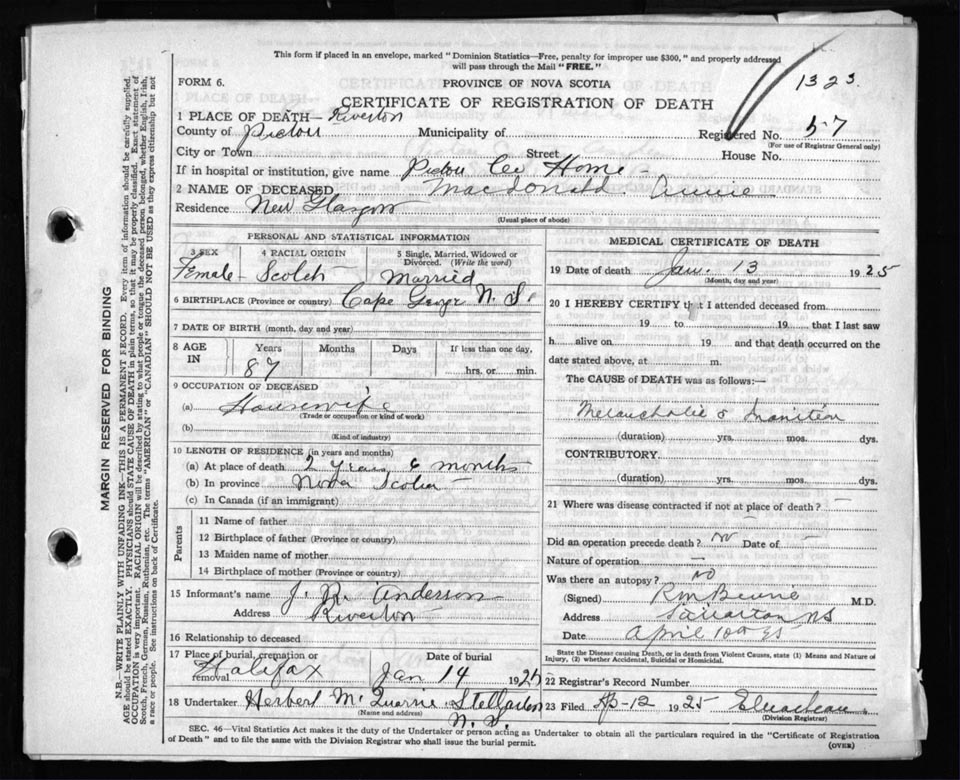 This form if placed in an envelope, marked "Dominion Statistics—Free, penalty for improper use $300," and properly addressed
will pass through the Mail "FREE."
FORM 6.
PROVINCE OF NOVA SCOTIA
1323
CERTIFICATE OF REGISTRATION OF DEATH
1 PLACE OF DEATH— Riverton
County of Pictou Municipality of Registered No. 57
(For use of Registrar General only)
City or Town Street House No.
If in hospital or institution, give name Pictou Co Home
2 NAME OF DECEASED Macdonald Annie
Residence New Glasgow
(Usual place of abode)
PERSONAL AND STATISTICAL INFORMATION
3 SEX 4 RACIAL ORIGIN 5 Single, Married, Widowed or Divorced. (Write the word)
Female Scotch Married
6 BIRTHPLACE (Province or country) Cape George N. S.
7 DATE OF BIRTH (month, day and year)
8 AGE IN Years Months Days If less than one day,
87 hrs. or min.
9 OCCUPATION OF DECEASED
(a) Housewife
(Trade or occupation or kind of work)
(b)
(Kind of industry)
10 LENGTH OF RESIDENCE (in years and months)
(a) At place of death 2 Years 6 months
(b) In province Nova Scotia
(c) In Canada (if an immigrant)
Parents
11 Name of father
12 Birthplace of father (Province or country)
13 Maiden name of mother
14 Birthplace of mother (Province or country)
15 Informant's name J. R. Anderson
Address Riverton
16 Relationship to deceased
17 Place of burial, cremation or removal Halifax Date of burial Jan 14 1925
18 Undertaker Herbert Stellarton
(Name and address) N. S.
MEDICAL CERTIFICATE OF DEATH
19 Date of death Jan. 13 1925
(Month, day and year)
20 I HEREBY CERTIFY that I attended deceased from
19 to 19 that I last saw
h alive on 19 and that death occurred on the
date stated above, at m.
The CAUSE of DEATH was as follows:—
Melancholia &
(duration) yrs. mos. dys.
CONTRIBUTORY.
(duration) yrs. mos. dys.
21 Where was disease contracted if not at place of death? —
Did an operation precede death? No Date of —
Nature of operation —
Was there an autopsy? NO
(Signed) M.D.
Address NS
Date April 10th 25
State the Disease causing Death, or in death from Violent Causes, state (1) Means and Nature of
Injury, (2) whether Accidental, Suicidal or Homicidal.
22 Registrar's Record Number
23 Filed Ap-12 1925
(Division Registrar)
SEC. 46—Vital Statistics Act makes it the duty of the Undertaker or person acting as Undertaker to obtain all the particulars required in the "Certificate of Registration
of Death" and to file the same with the Division Registrar who shall issue the burial permit.
(OVER)
MARGIN RESERVED FOR BINDING
N.B.—WRITE PLAINLY WITH UNFADING INK—THIS IS A PERMANENT RECORD. Every item of information should be carefully supplied.
AGE should be stated EXACTLY. PHYSICIANS should STATE CAUSE OF DEATH in plain terms, so that it may be properly classified. Exact statement of
OCCUPATION is very important. RACIAL ORIGIN will be described by stating to what people or tongue the deceased person belonged, whether English, Irish,
Scotch, French, German, Russian, Ruthenian, etc. The terms "AMERICAN" or "CANADIAN" SHOULD NOT BE USED as they express citizenship but not
a race or people. See instructions on back of Certificate.